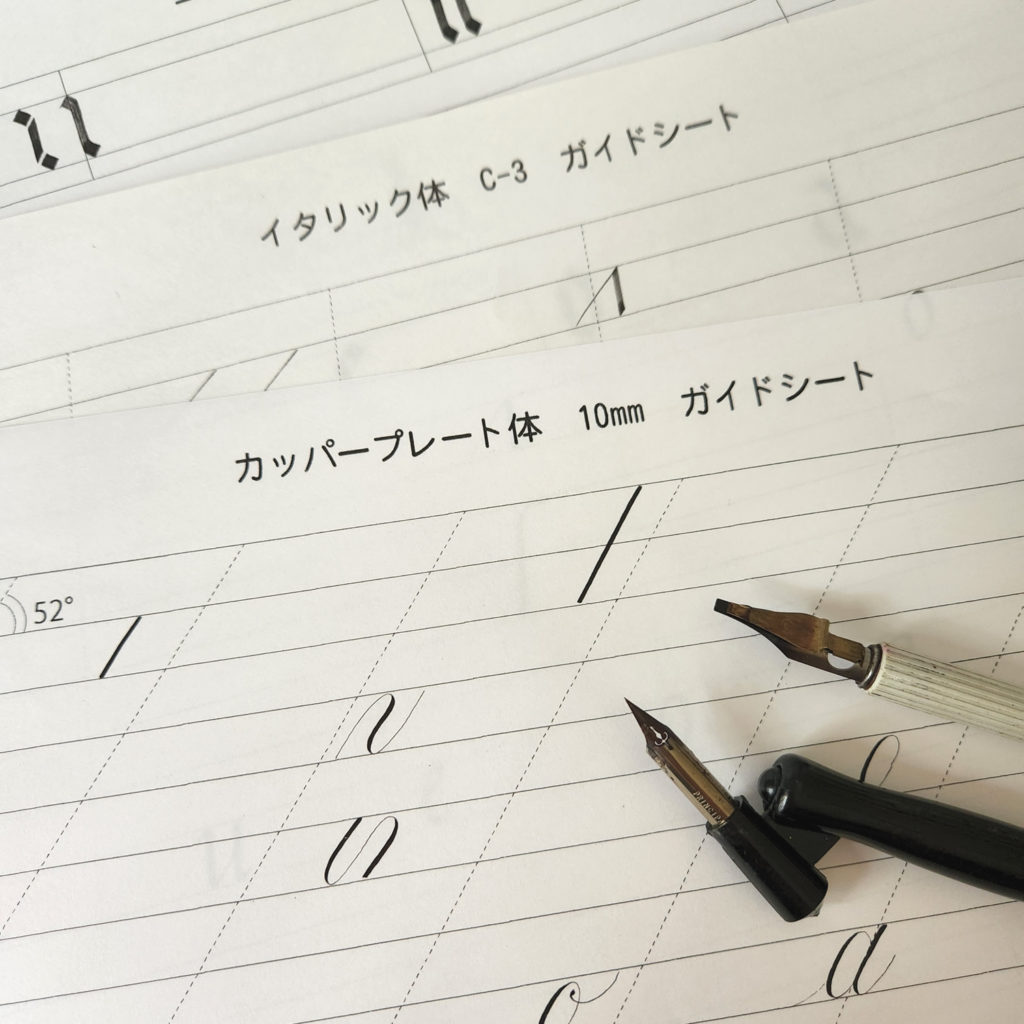 イタリック体　C-3　ガイドシート
カッパープレート体　10mm　ガイドシート
52°
a